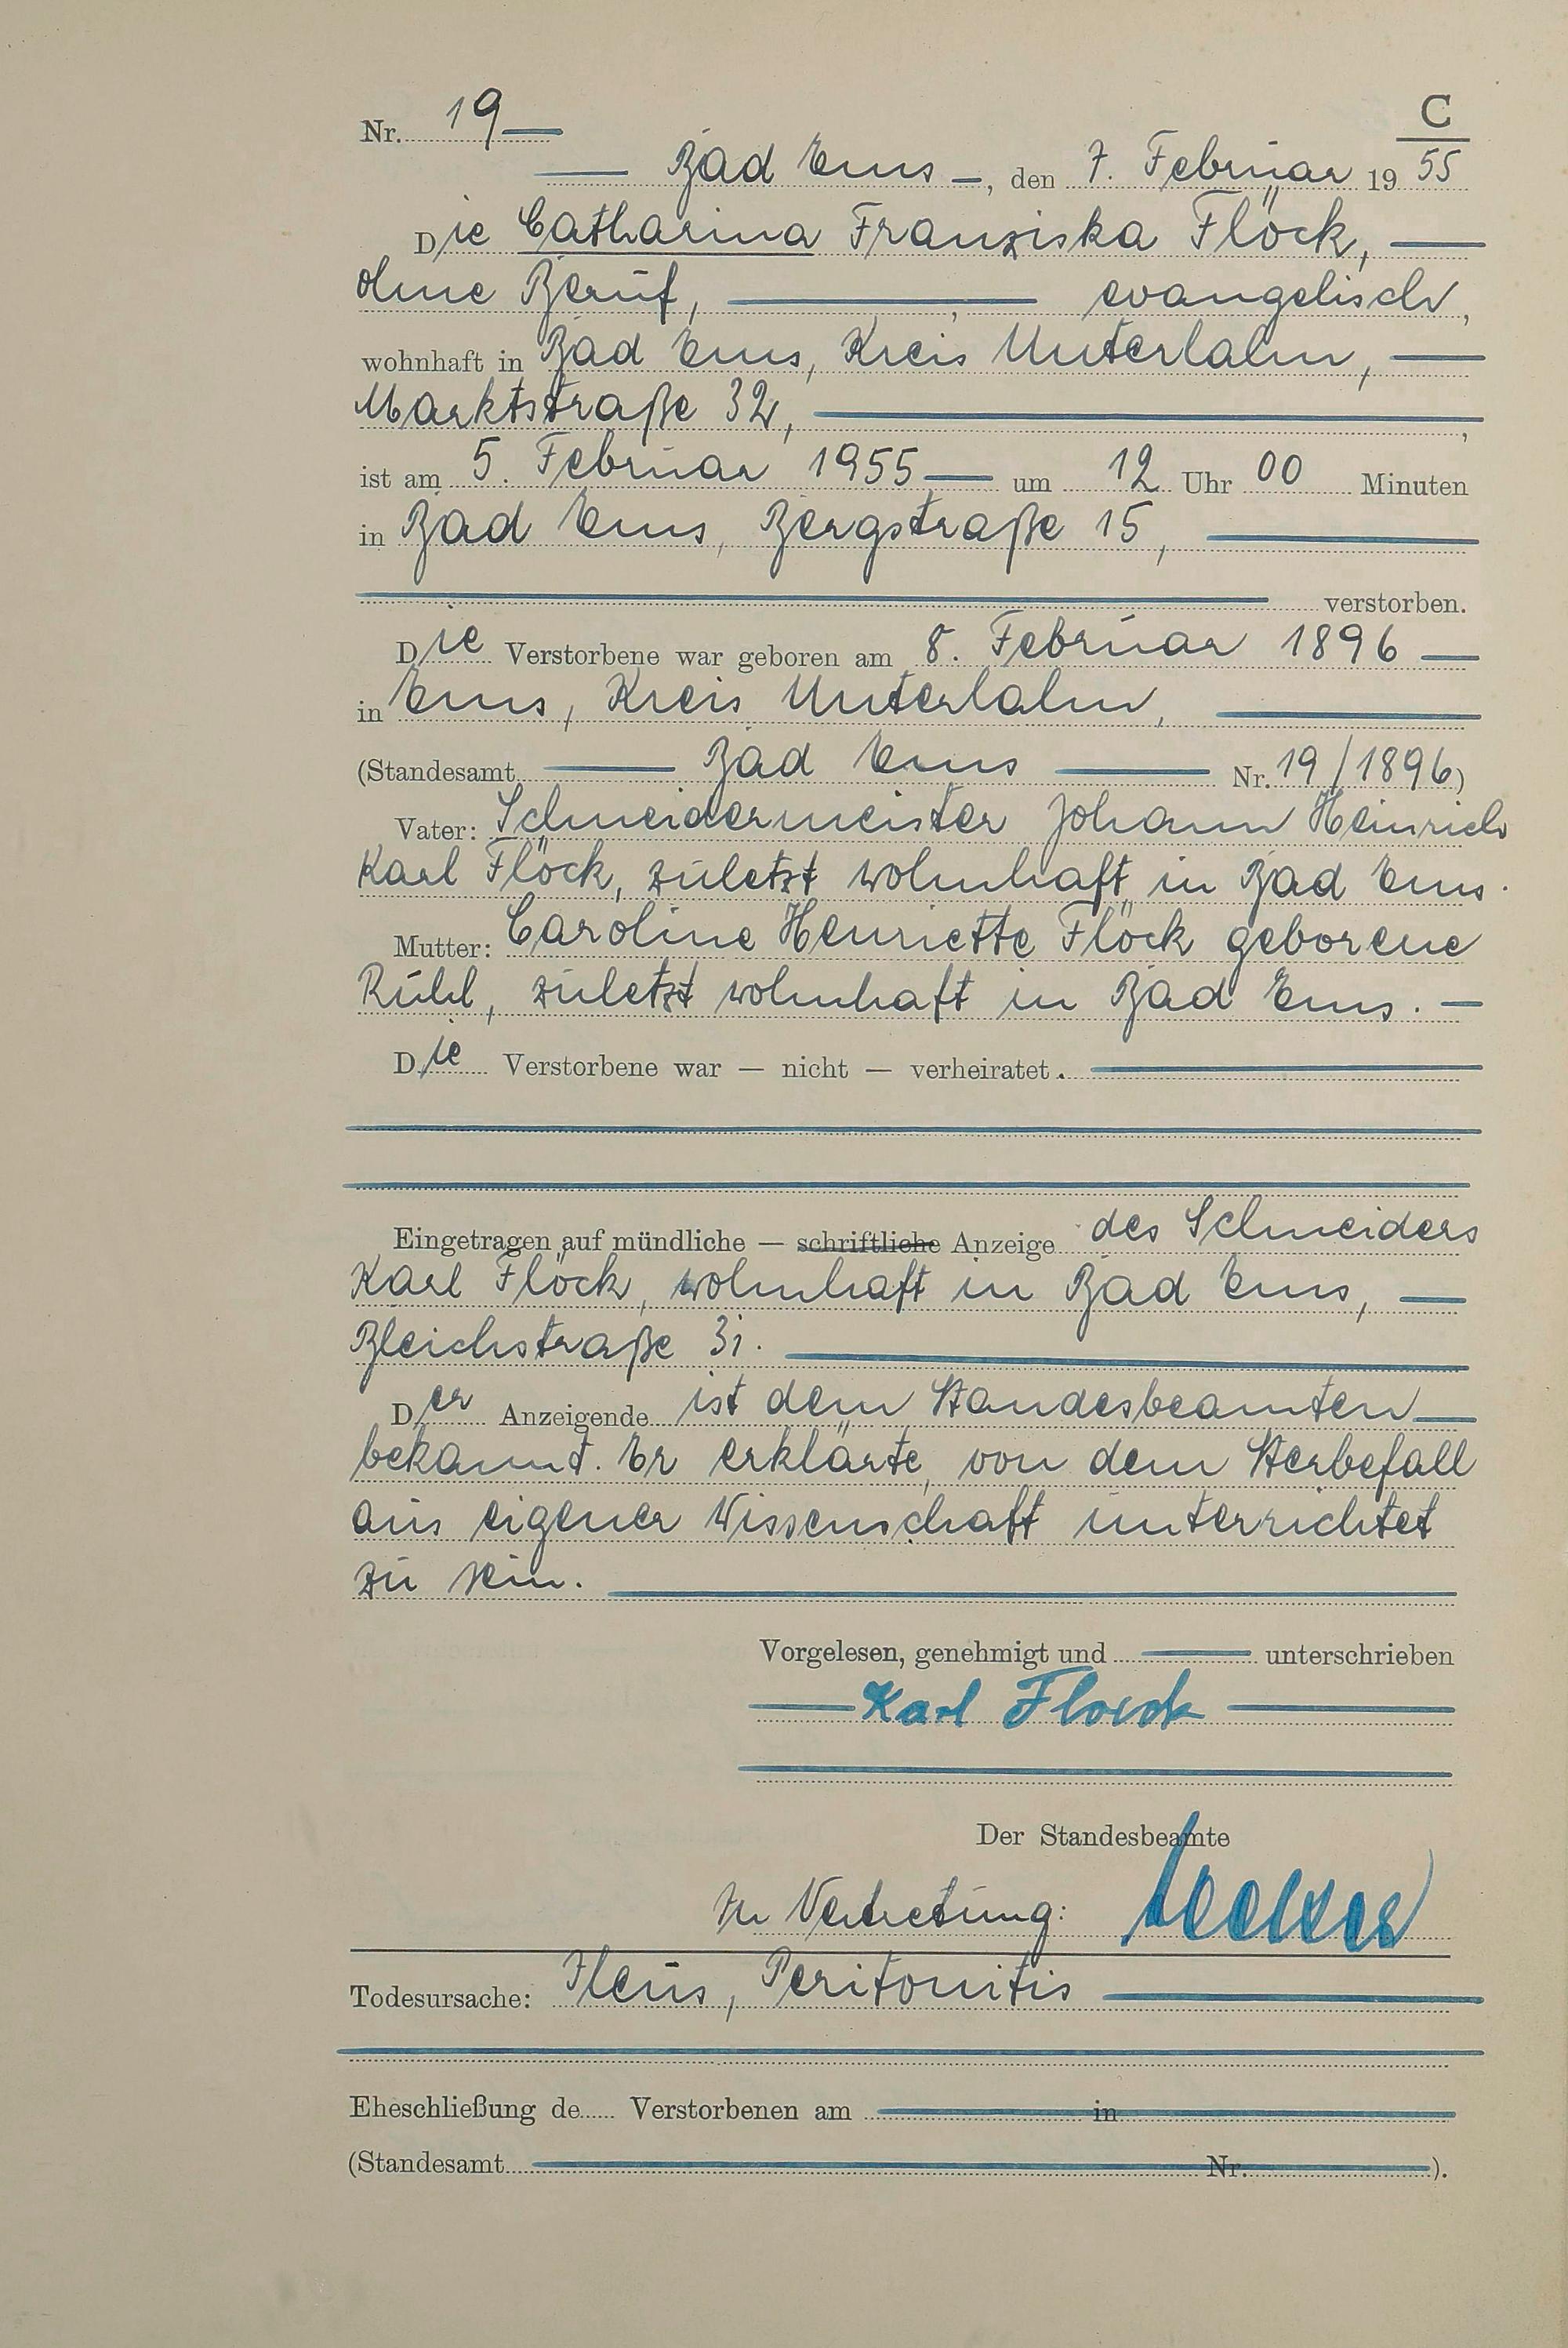 C
Nr. 19
Bad Ems, den 7. Februar 1955
Die Catharina Franziska Flöck,
ohne Beruf, , evangelisch,
wohnhaft in Bad Ems, Kreis Unterlahn,
Marktstraße 32, ,
ist am 5. Februar 1955 um 12 Uhr 00 Minuten
in Bad Ems, Bergstraße 15,
verstorben.
Die Verstorbene war geboren am 8. Februar 1896
in Ems, Kreis Unterlahn,
(Standesamt Bad Ems Nr. 19/1896)
Vater: Schneidermeister Johann Heinrich
Karl Flöck, zuletzt wohnhaft in Bad Ems.
Mutter: Caroline Henriette Flöck geborene
Rühl, zuletzt wohnhaft in Bad Ems.
Die Verstorbene war — nicht — verheiratet.
Eingetragen auf mündliche — schriftliche Anzeige des Schneiders
Karl Flöck, wohnhaft in Bad Ems,
Bleichstraße 31.
Der Anzeigende ist dem Standesbeamten
bekannt. Er erklärte, von dem Sterbefall
aus eigener Wissenschaft unterrichtet
zu sein.
Vorgelesen, genehmigt und unterschrieben
Karl Floeck
Der Standesbeamte
In Vertretung:
Todesursache: Ileus, Peritonitis
Eheschließung de Verstorbenen am in
(Standesamt Nr. ).